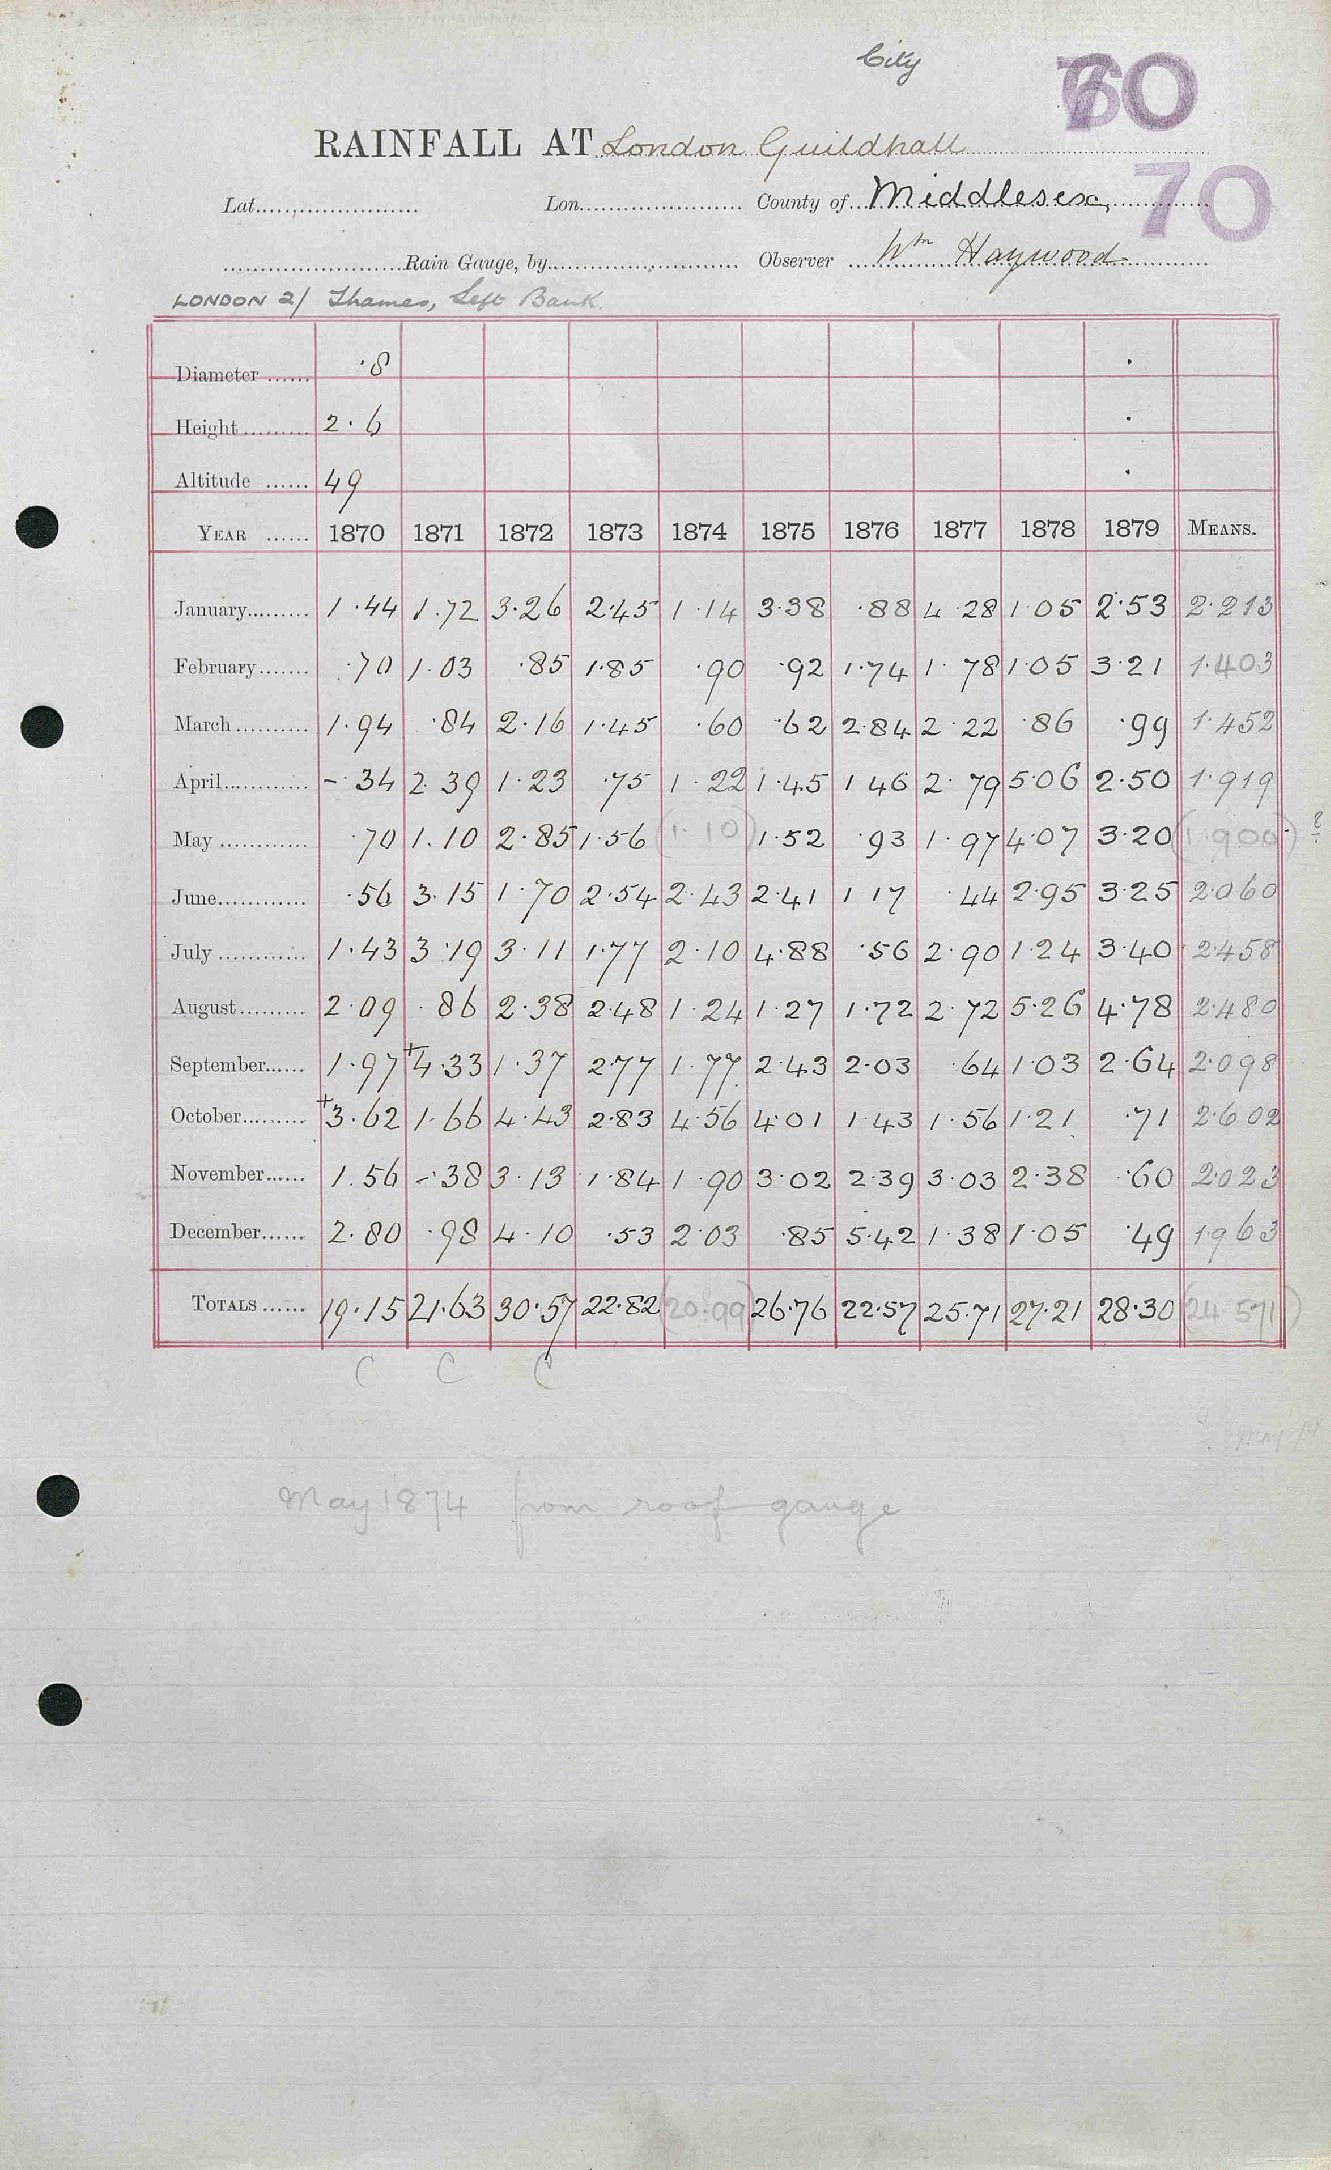 City
70
RAINFALL AT London Guildhall
70
Lat. Lon. County of Middlesex,
Rain Gauge, by Observer Wm Haywood
LONDON 2/ Thames, Left Bank.
Diameter ·8
Height 2·6
Altitude 49
YEAR 1870 1871 1872 1873 1874 1875 1876 1877 1878 1879 MEANS.
January 1·44 1.72 3·26 2·45 1·14 3·38 ·88 4 28 1·05 2·53 2·213
February ·70 1·03 ·85 1·85 ·90 ·92 1·74 1·78 1·05 3·21 1·403
March 1·94 ·84 2·16 1·45 ·60 ·62 2·84 2·22 ·86 ·99 1·452
April ·34 2·39 1·23 ·75 1·22 1·45 1 46 2·79 5·06 2·50 1·919
May ·70 1.10 2·85 1·56 (1·10) 1·52 ·93 1·97 4·07 3·20 (1·900) ?
June ·56 3·15 1·70 2·54 2·43 2·41 1 17 ·44 2·95 3·25 2·060
July 1·43 3·19 3·11 1·77 2·10 4·88 ·56 2·90 1·24 3·40 2·458
August 2·09 ·86 2·38 2·48 1·24 1·27 1·72 2·72 5·26 4·78 2·480
September 1·97 +4·33 1·37 2·77 1·77 2·43 2·03 ·64 1·03 2·64 2·098
October +3·62 1·66 4·43 2·83 4·56 4·01 1·43 1·56 1·21 ·71 2·602
November 1.56 ·38 3·13 1·84 1·90 3·02 2·39 3·03 2·38 ·60 2·023
December 2·80 ·98 4·10 ·53 2·03 ·85 5·42 1·38 1·05 ·49 1·963
TOTALS 19·15 21·63 30·57 22·82 (20·99) 26·76 22·57 25·71 27·21 28·30 (24·571)
C C C
May 1874 from roof gauge